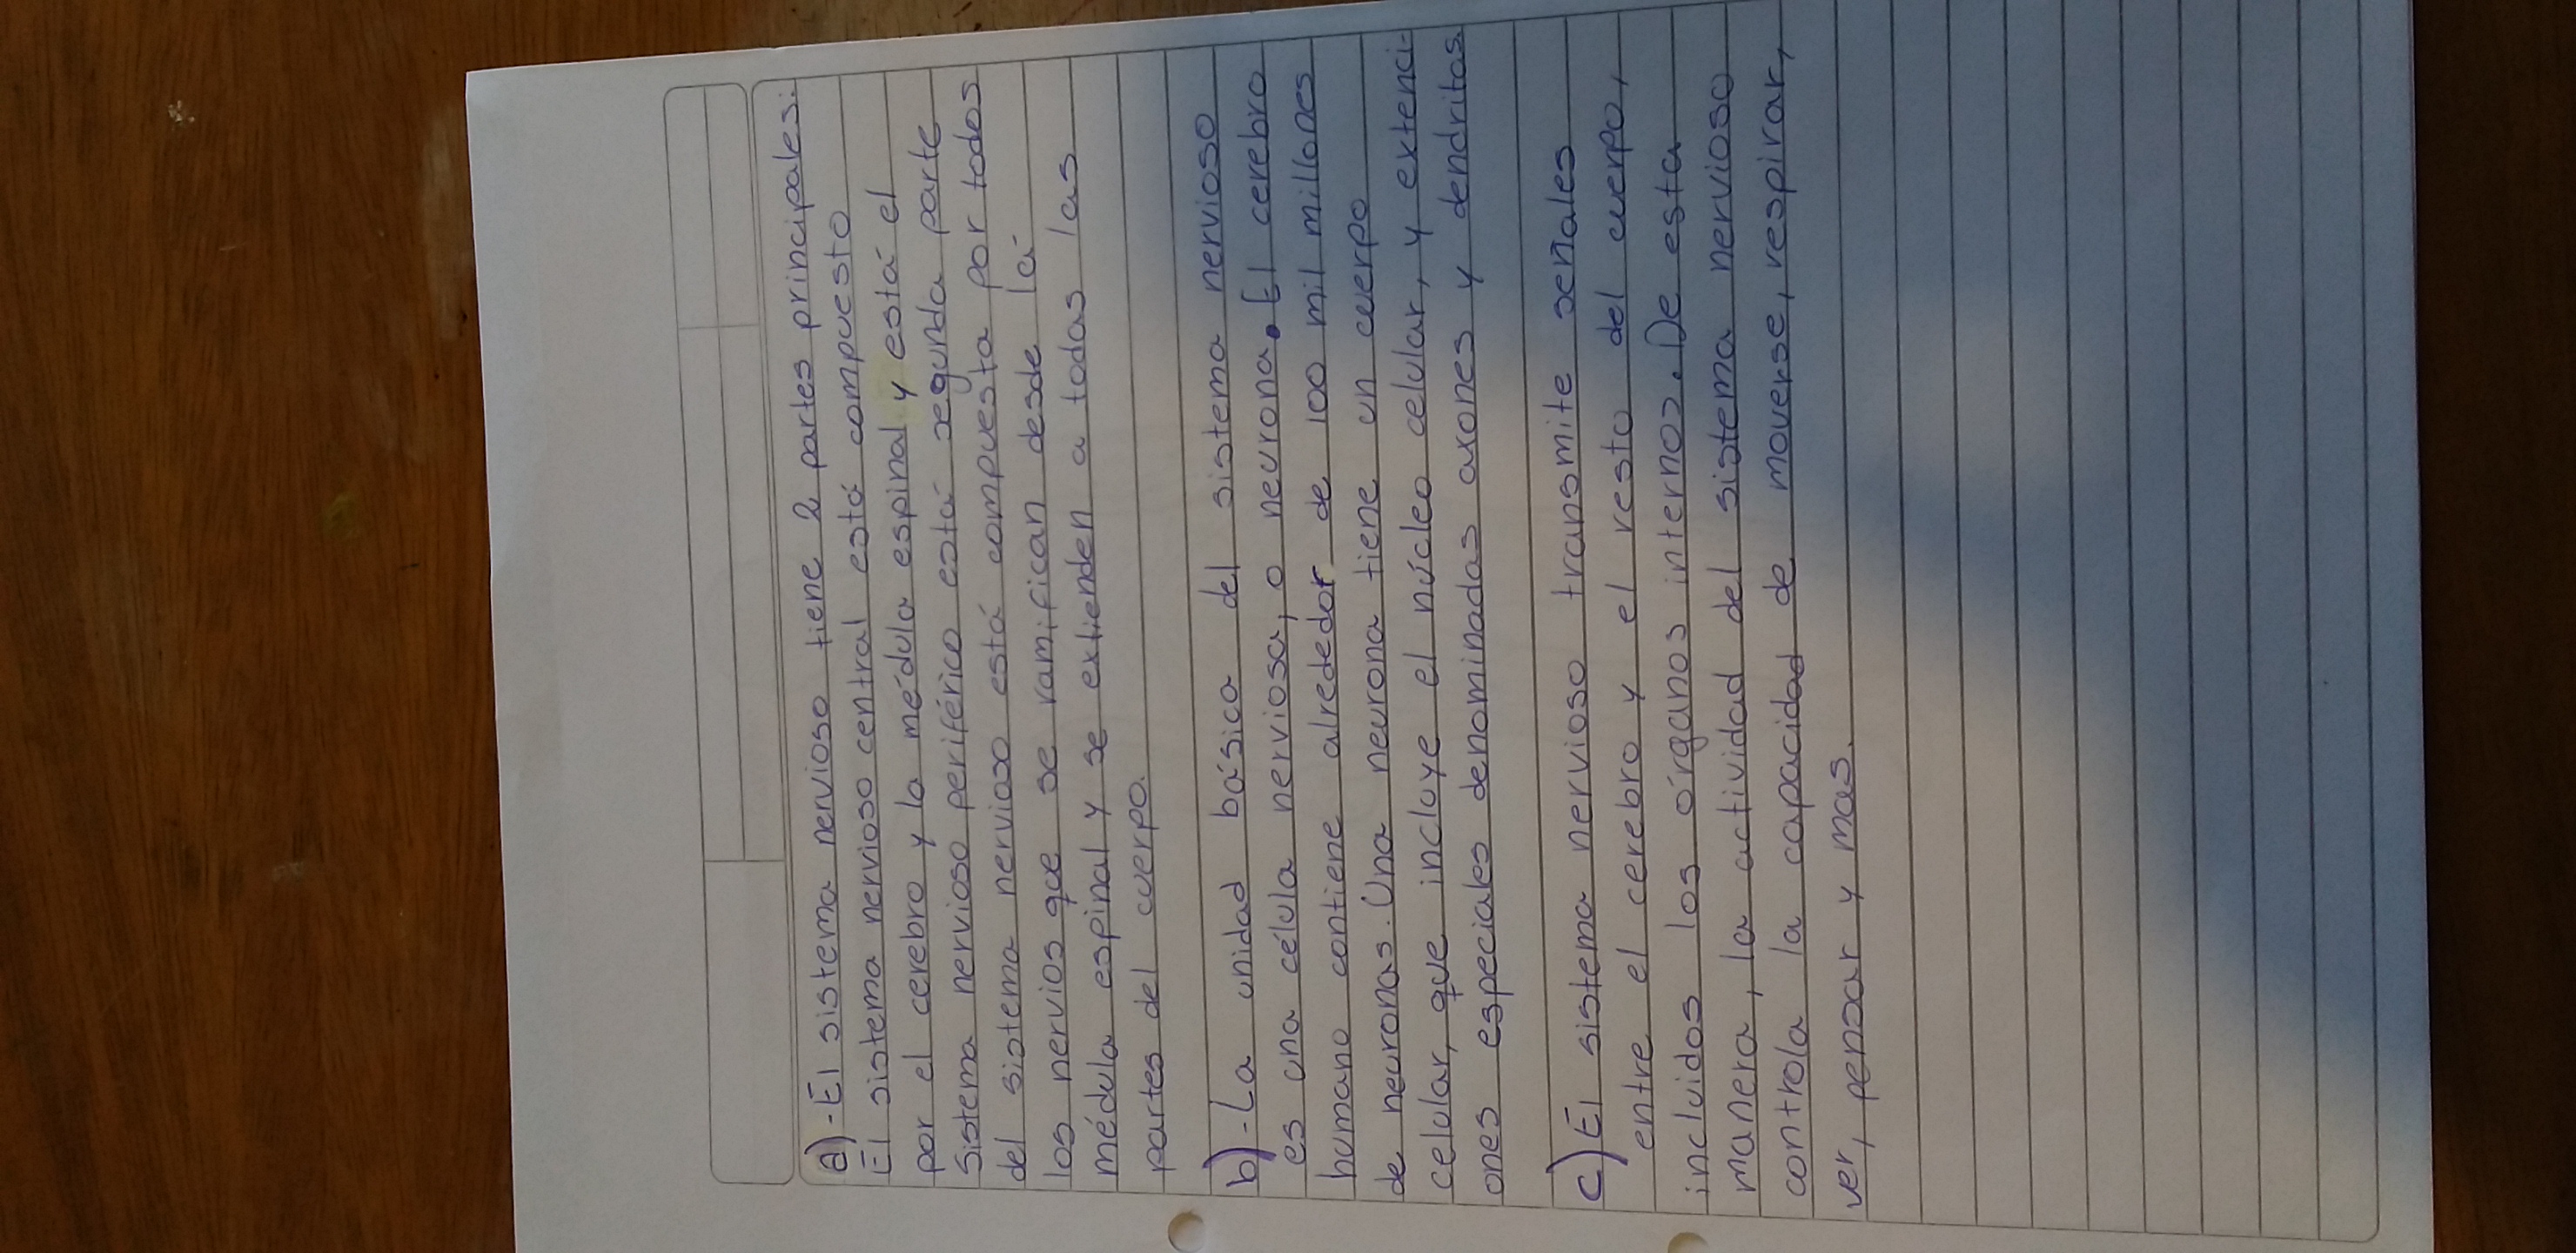 a)-El sistema nervioso tiene 2 partes principales:
El sistema nervioso central está compuesto
por el cerebro y la médula espinal y está el
sistema nervioso periférico está segunda parte
del sistema nervioso está compuesta por todos
los nervios que se ramifican desde la
médula espinal y se extienden a todas las
partes del cuerpo.
b)-La unidad básica del sistema nervioso
es una célula nerviosa, o neurona. El cerebro
humano contiene alrededor de 100 mil millones
de neuronas. Una neurona tiene un cuerpo
celular, que incluye el núcleo celular, y extenci-
ones especiales denominadas axones y dendritas.
c) El sistema nervioso transmite señales
entre el cerebro y el resto del cuerpo,
incluidos los órganos internos. De esta
manera, la actividad del sistema nervioso
controla la capacidad de moverse, respirar,
ver, pensar y mas.